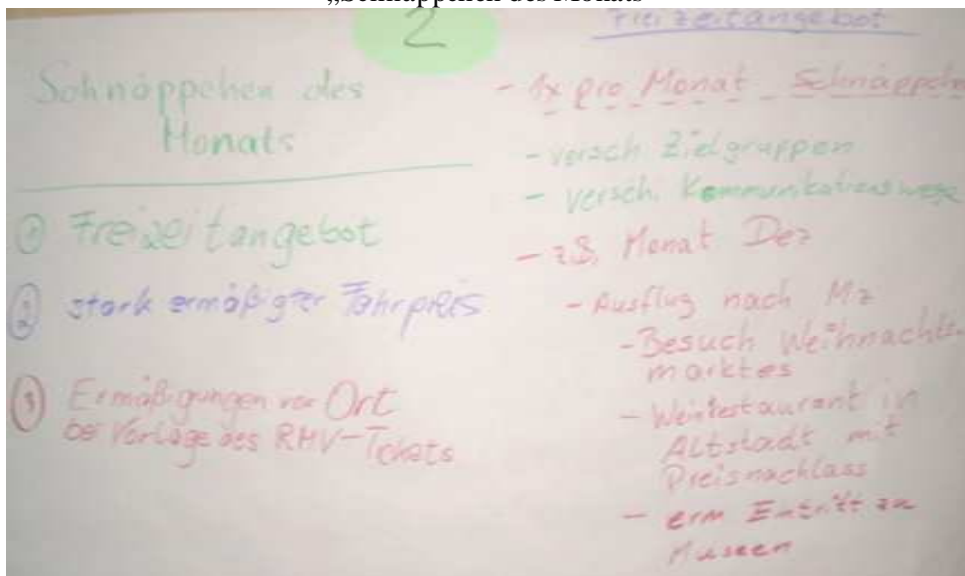 „Schnäppchen des Monats“
2
Schnäppchen des
Monats
① Freizeitangebot
② stark ermäßigter Fahrpreis
③ Ermäßigungen vor Ort
bei Vorlage des RMV-Tickets
Freizeitangebot
- 1x pro Monat Schnäppchen
- versch. Zielgruppen
- versch. Kommunikationswege
- z.B. Monat Dez
- Ausflug nach Mz
- Besuch Weihnachts-
marktes
- Weinrestaurant in
Altstadt mit
Preisnachlass
- erm Eintritt zu
Museen